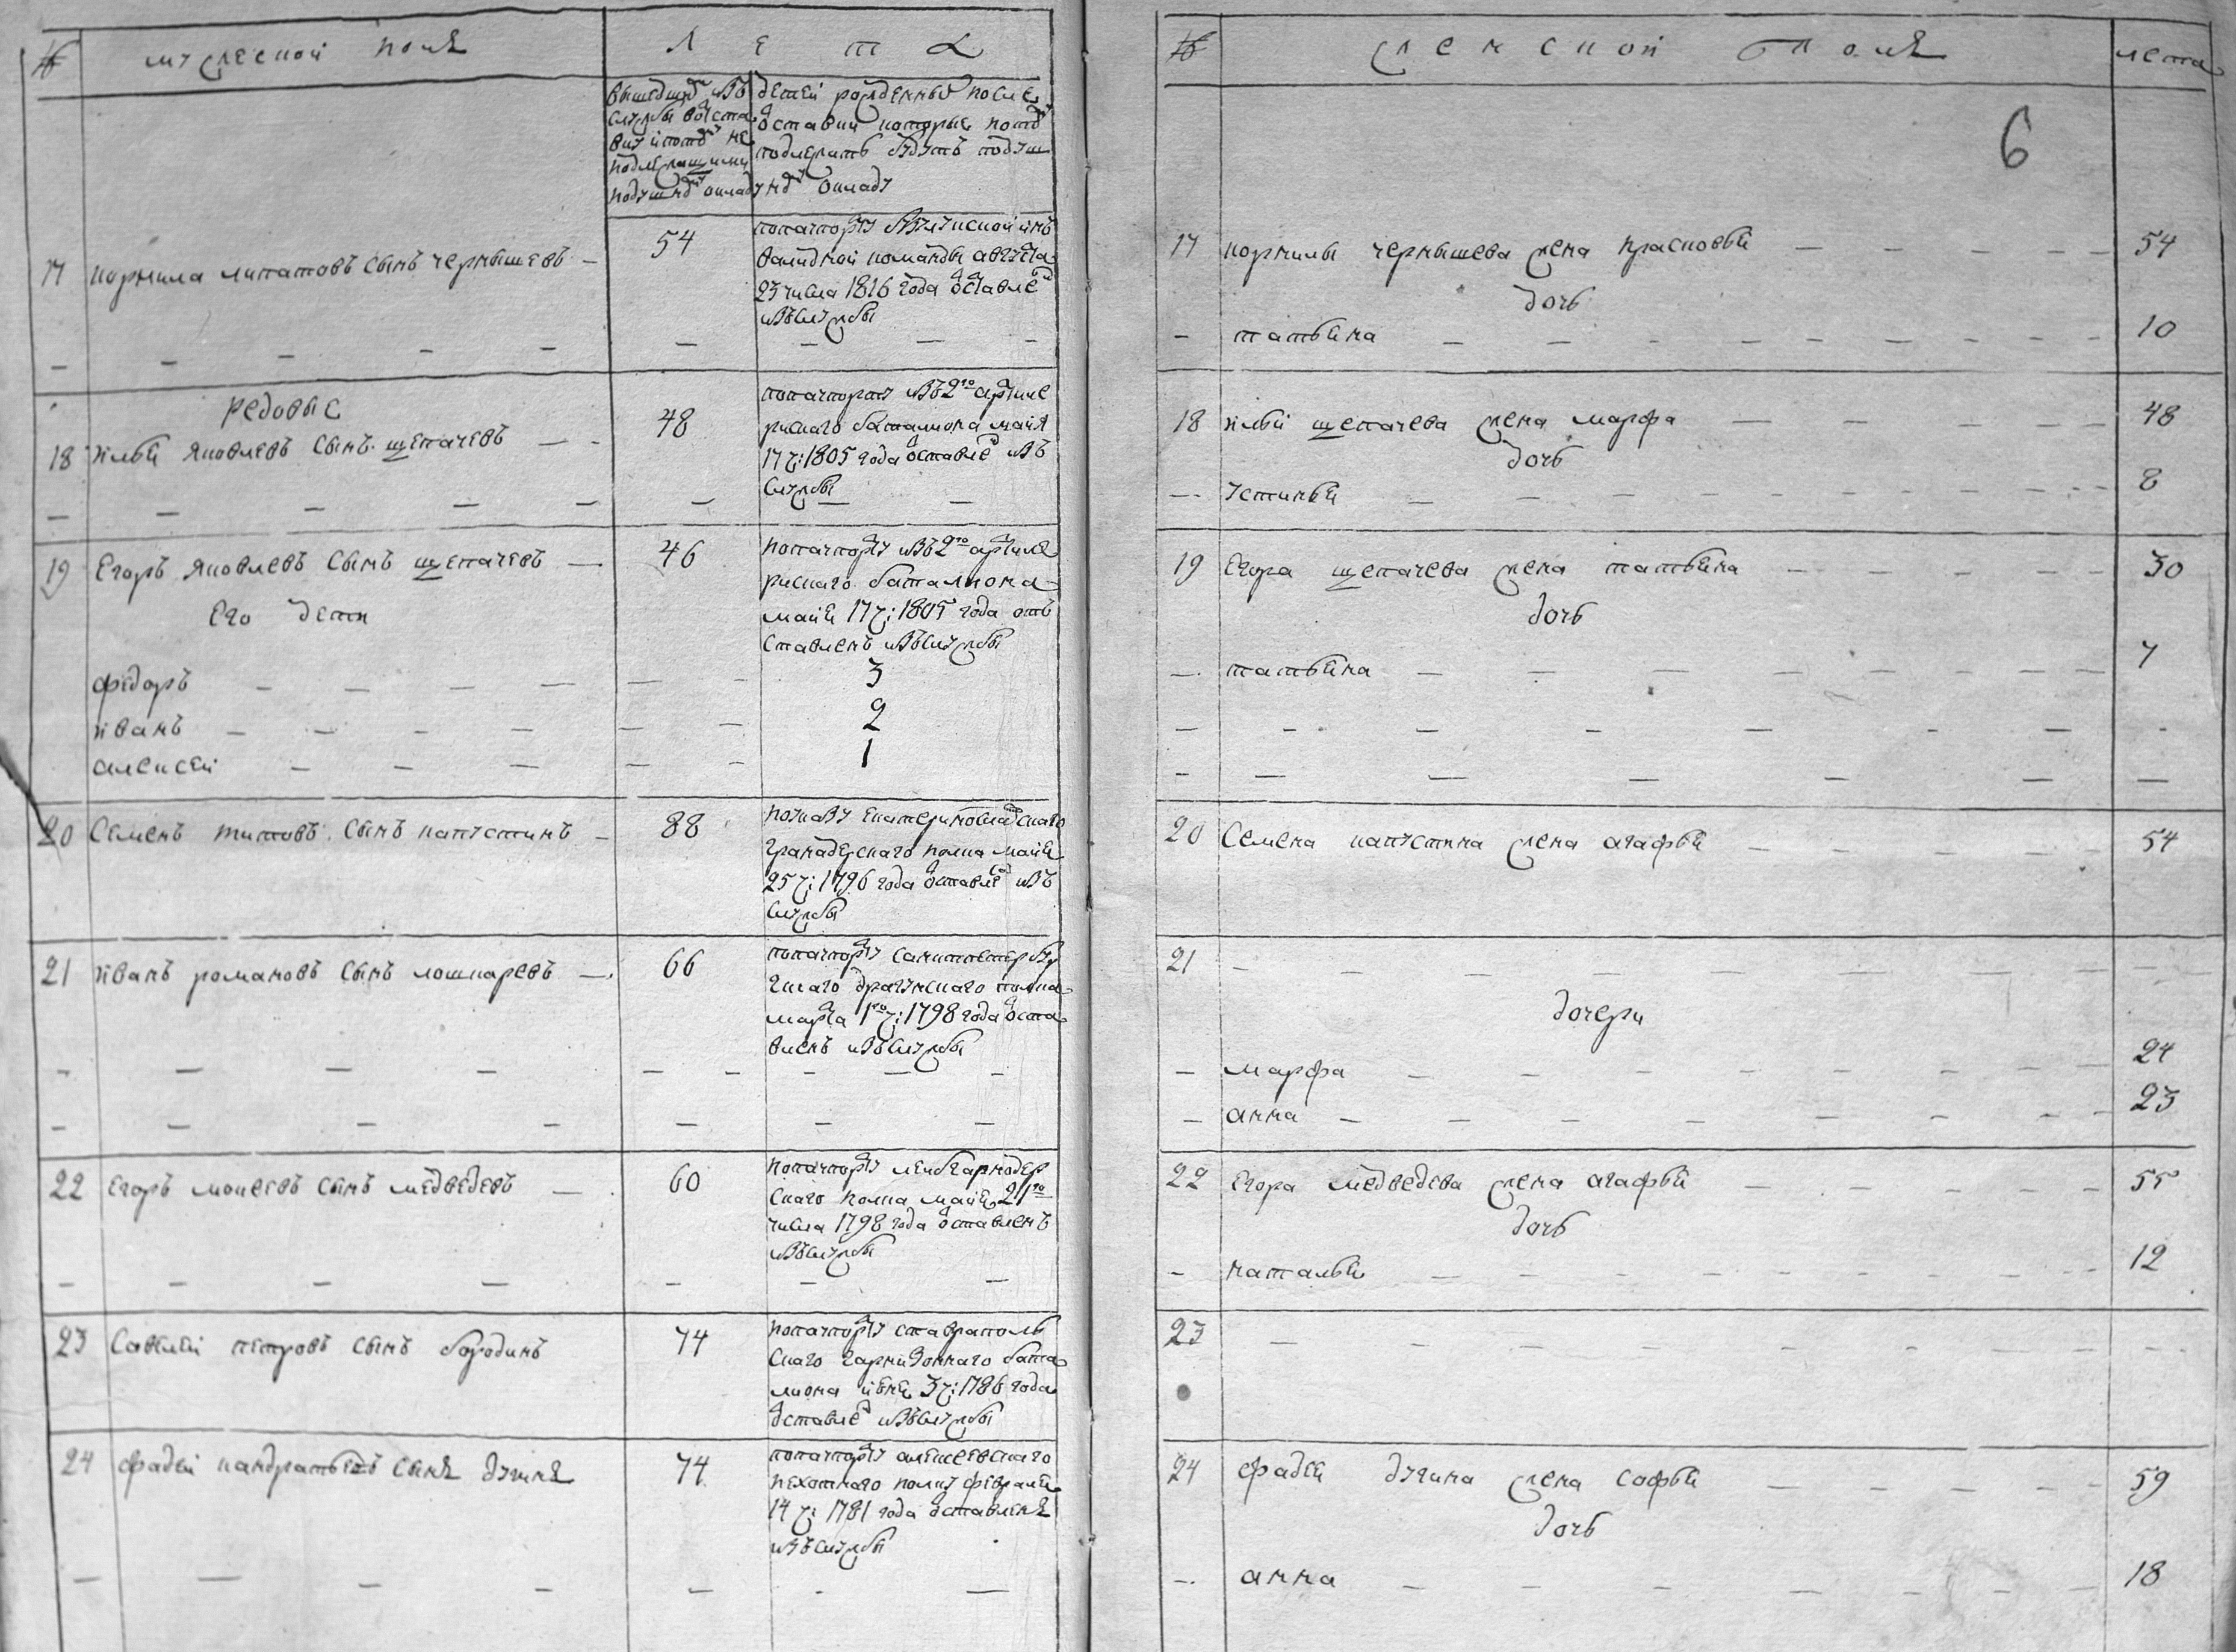 № мужеской полъ Л е т а
вышедшихъ изъ службы воотставку и потому не подлежащими подушному окладу
детей рожденныхъ после отставки которые потому подлежить будутъ подушному окладу
17 кормила липатовъ сынъ чернышевъ — 54
попачпорту
валидной команды августа
23 числа 1816 года отставле
изъслужбы
— — — — — — — — —
редовые
18 илья яковлевъ сынъ щепачевъ — 48
попачпорту изъ 2го артиле
рискаго баталиона майя
17 ч: 1805 года отставле изъ
службы
— — — — — — — —
19 Егоръ яковлевъ сынъ щепачевъ — 46
попачпорту изъ 2го артиле
рискаго баталиона
майя 17 ч: 1805 года от
ставленъ изъслужбы
его дети
федоръ — — — — — — 3
иванъ — — — — — — 2
алексей — — — — — 1
20 Семенъ титовъ сынъ капустинъ — 88
поуказу екатеринославскаго
гранадерскаго полка майя
25 ч: 1796 года отставле изъ
службы
21 иванъ романовъ сынъ лошкаревъ — 66
попачпорту санктпетербу
гскаго драгунскаго полка
марта 1го ч: 1798 года отста
вленъ изъслужбы
— — — — — — — — —
— — — — — — —
22 егоръ моисевъ сынъ медведевъ — 60
попачпорту
скаго полка майя 21го
числа 1798 года отставленъ
изъслужбы
— — — — — — —
23 Савелей петровъ сынъ бородинъ 74
попачпорту ставраполь
скаго гарнизоннаго бата
лиона июня 3 ч: 1786 года
отставле изъслужбы
24 фадей кандратьевъ сынъ дугинъ 74
попачпорту алексевскаго
пехотнаго полку февраля
14 ч: 1781 года отставленъ
изъслужбы
— — — — — — —
№ женской полъ лета
6
17 кормилы чернышева жена прасковья — — — — — 54
дочь
— татьяна — — — — — — — — — 10
18 ильи щепачева жена марфа — — — — — 48
дочь
— устинья — — — — — — — — 8
19 егора щепачева жена татьяна — — — — — 30
дочь
— татьяна — — — — — — — 7
— — — — — — — —
— — — — — — —
20 Семена капустина жена агафья — — — — — 54
21 — — — — — — — — —
дочери
— марфа — — — — — — 24
— анна — — — — — — 23
22 егора медведева жена агафья — — — — — 55
дочь
— наталья — — — — — — — — 12
23 — — — — — — — —
24 фадея дугина жена софья — — — — — 59
дочь
— анна — — — — — — 18